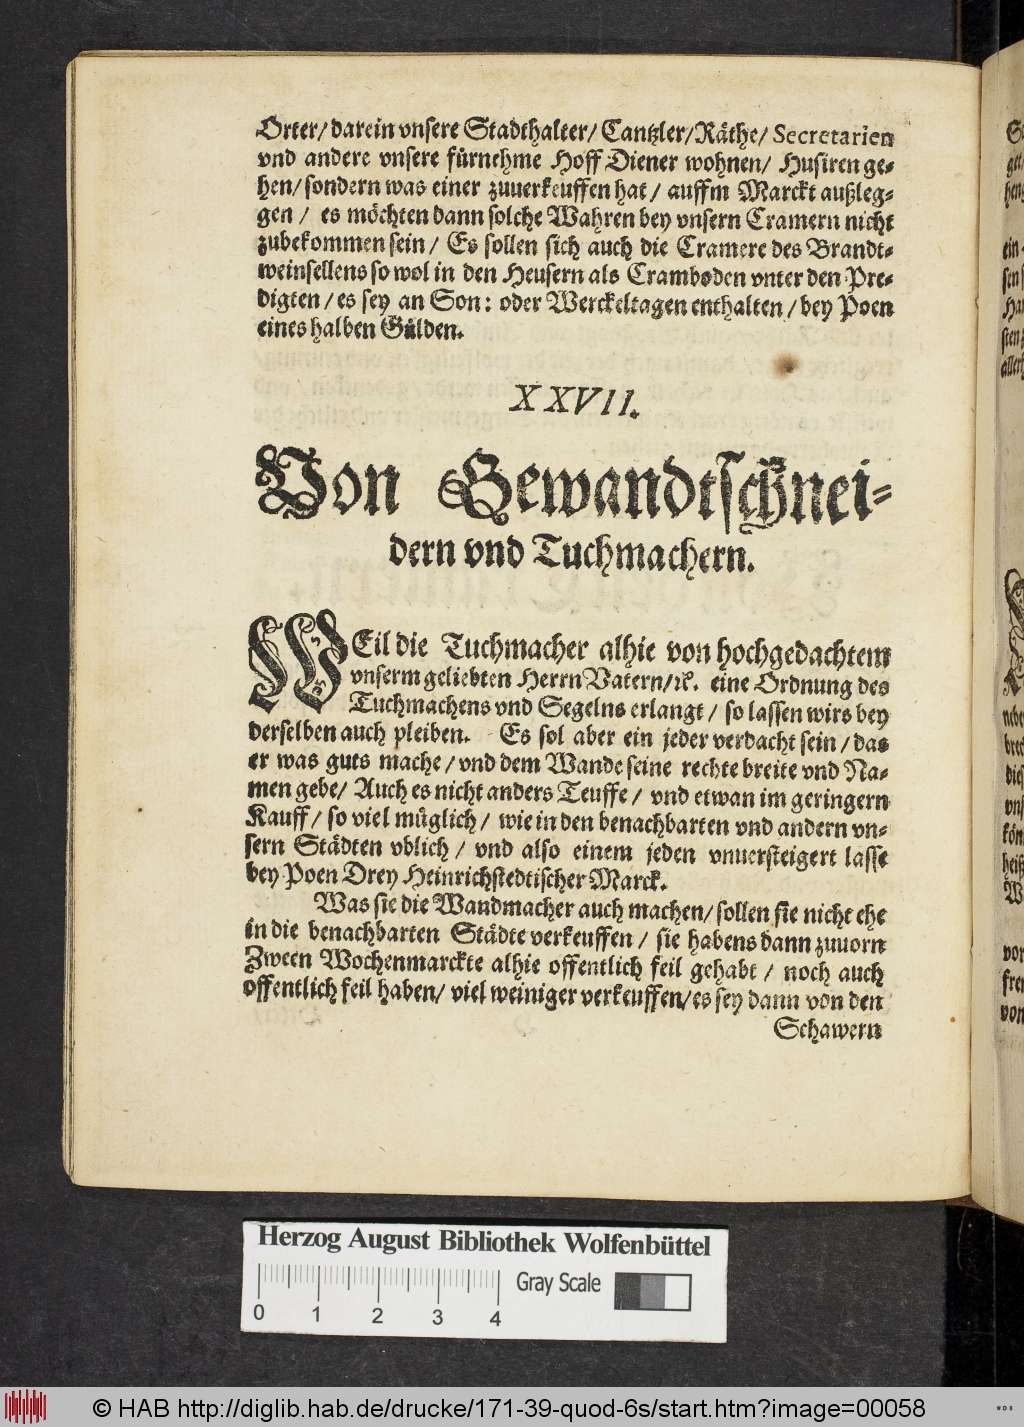 Orter/ darein vnsere Stadthalter/ Cantzler/ Räthe/ Secretarien
vnd andere vnsere fürnehme Hoff Diener wohnen/ Husiren ge-
hen/ sondern was einer zuuerkeuffen hat/ auffm Marckt außleg-
gen / es möchten dann solche Wahren bey vnsern Cramern nicht
zubekommen sein/ Es sollen sich auch die Cramere des Brandt-
weinsellens so wol in den Heusern als Cramboden vnter den Pre-
digten/ es sey an Son: oder Werckeltagen enthalten/ bey Poen
eines halben Gülden.
XXVII.
Von Gewandtschnei-
dern vnd Tuchmachern.
WEil die Tuchmacher alhie von hochgedachtem
vnserm geliebten Herrn Vatern/ ꝛc. eine Ordnung des
Tuchmachens vnd Segelns erlangt / so lassen wirs bey
derselben auch pleiben. Es sol aber ein jeder verdacht sein / das
er was guts mache / vnd dem Wande seine rechte breite vnd Na-
men gebe/ Auch es nicht anders Teuffe / vnd etwan im geringern
Kauff / so viel müglich / wie in den benachbarten vnd andern vn-
sern Städten vblich / vnd also einem jeden vnuersteigert lasse
bey Poen Drey Heinrichstedtischer Marck.
Was sie die Wandmacher auch machen/ sollen sie nicht ehe
in die benachbarten Städte verkeuffen / sie habens dann zuuorn
Zween Wochenmarckte alhie offentlich feil gehabt / noch auch
offentlich feil haben/ viel weiniger verkeuffen/ es sey dann von den
Schawern
Herzog August Bibliothek Wolfenbüttel
Gray Scale
0 1 2 3 4
© HAB http://diglib.hab.de/drucke/171-39-quod-6s/start.htm?image=00058